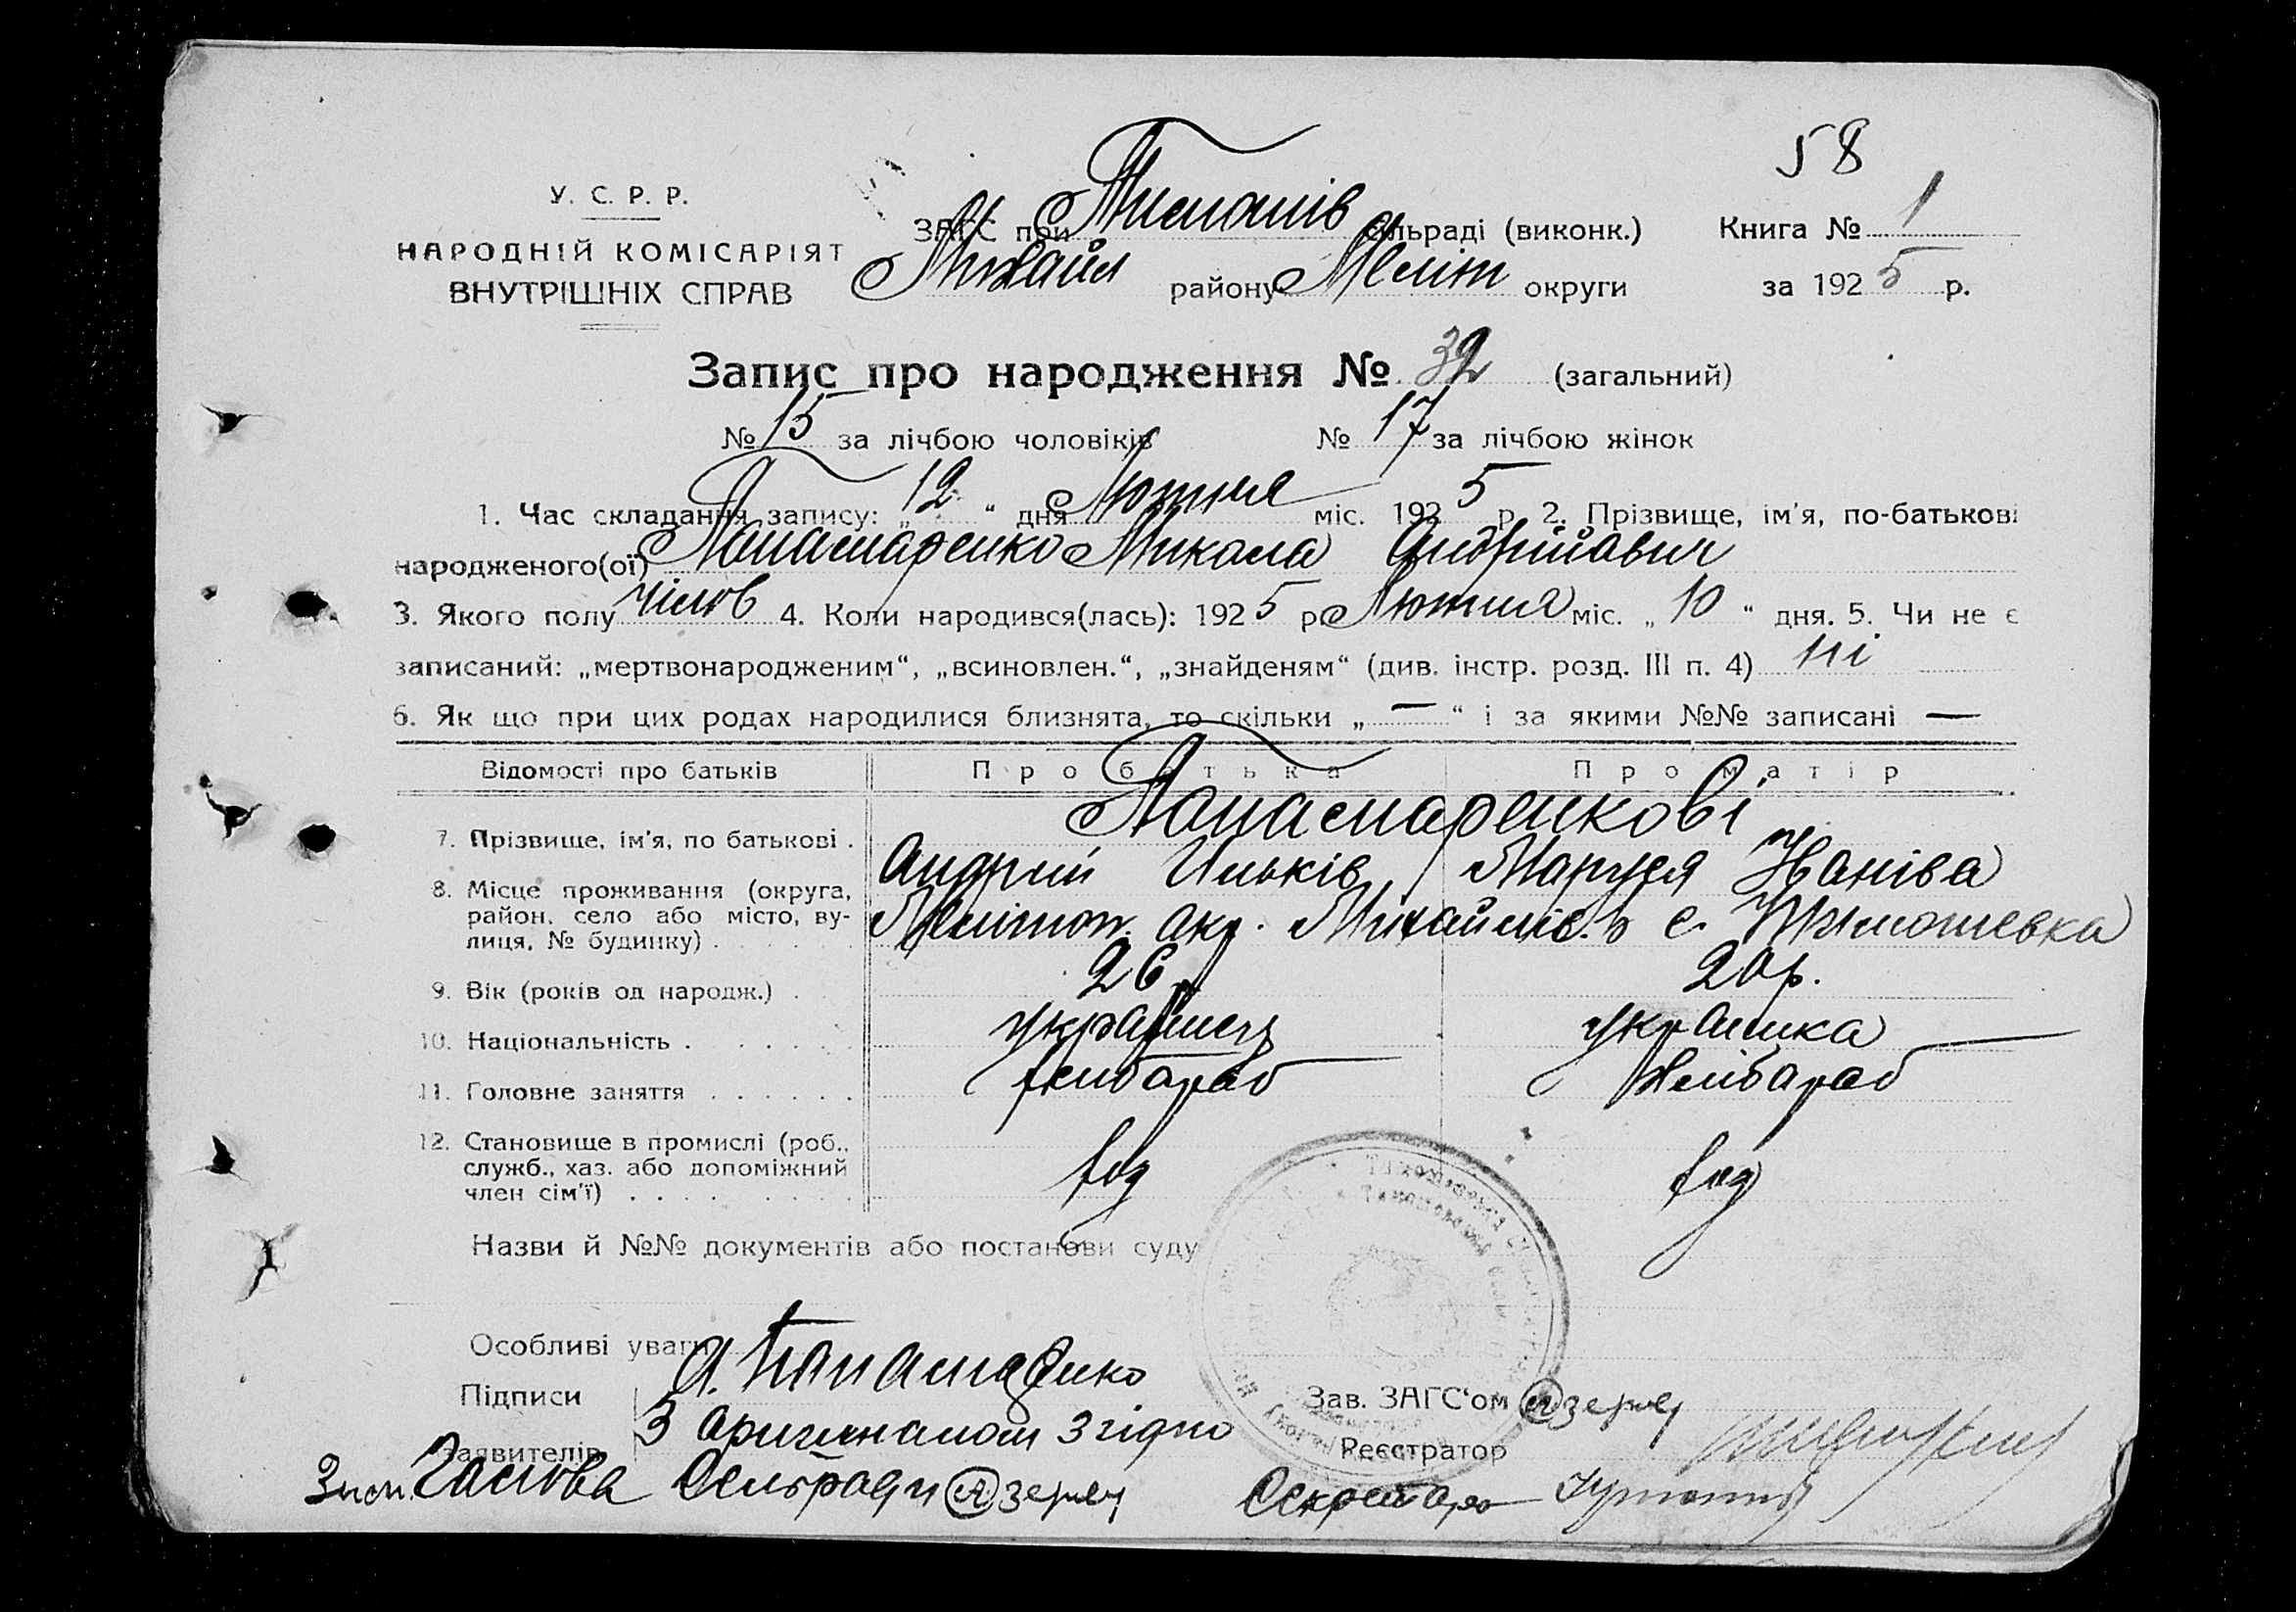 58
У. С. Р. Р.
НАРОДНІЙ КОМІСАРІЯТ
ВНУТРІШНІХ СПРАВ
ЗАГС при Тимошів сільраді (виконк.) Книга № 1
Михайл району Меліт округи за 1925 р.
Запис про народження № 32 (загальний)
№ 15 за лічбою чоловіків № 17 за лічбою жінок
1. Час складання запису: „12“ дня Лютня міс. 1925 р. 2. Прізвище, ім'я, по-батькові
народженого(ої) Панамаренко Микола Андрійович
3. Якого полу чолов 4. Коли народився(лась): 1925 р. Лютня міс. „10“ дня. 5. Чи не є
записаний: „мертвонародженим“, „всиновлен.“, „знайденям“ (див. інстр. розд. III п. 4) ні
6. Як що при цих родах народилися близнята, то скільки „—“ і за якими №№ записані —
Відомості про батьків Про батька Про матір
Панамаренкові
7. Прізвище, ім'я, по батькові . Андрій Ильків Маруся Іванівa
8. Місце проживання (округа,
район, село або місто, ву-
лиця, № будинку) . Мелітоп. окр. Михайлів. р с. Тимошевка
9. Вік (років од народж.) . 26 р 20 р.
10. Національність . українець українка
11. Головне заняття . хлібороб хлібороб
12. Становище в промислі (роб.,
служб., хаз. або допоміжний
член сім'ї) .
Назви й №№ документів або постанови суду
Особливі уваги
Підписи А. Панамаренко Зав. ЗАГС‘ом
Заявителів З оригиналом згідно Реєстратор
Голова Сельради Секретарь